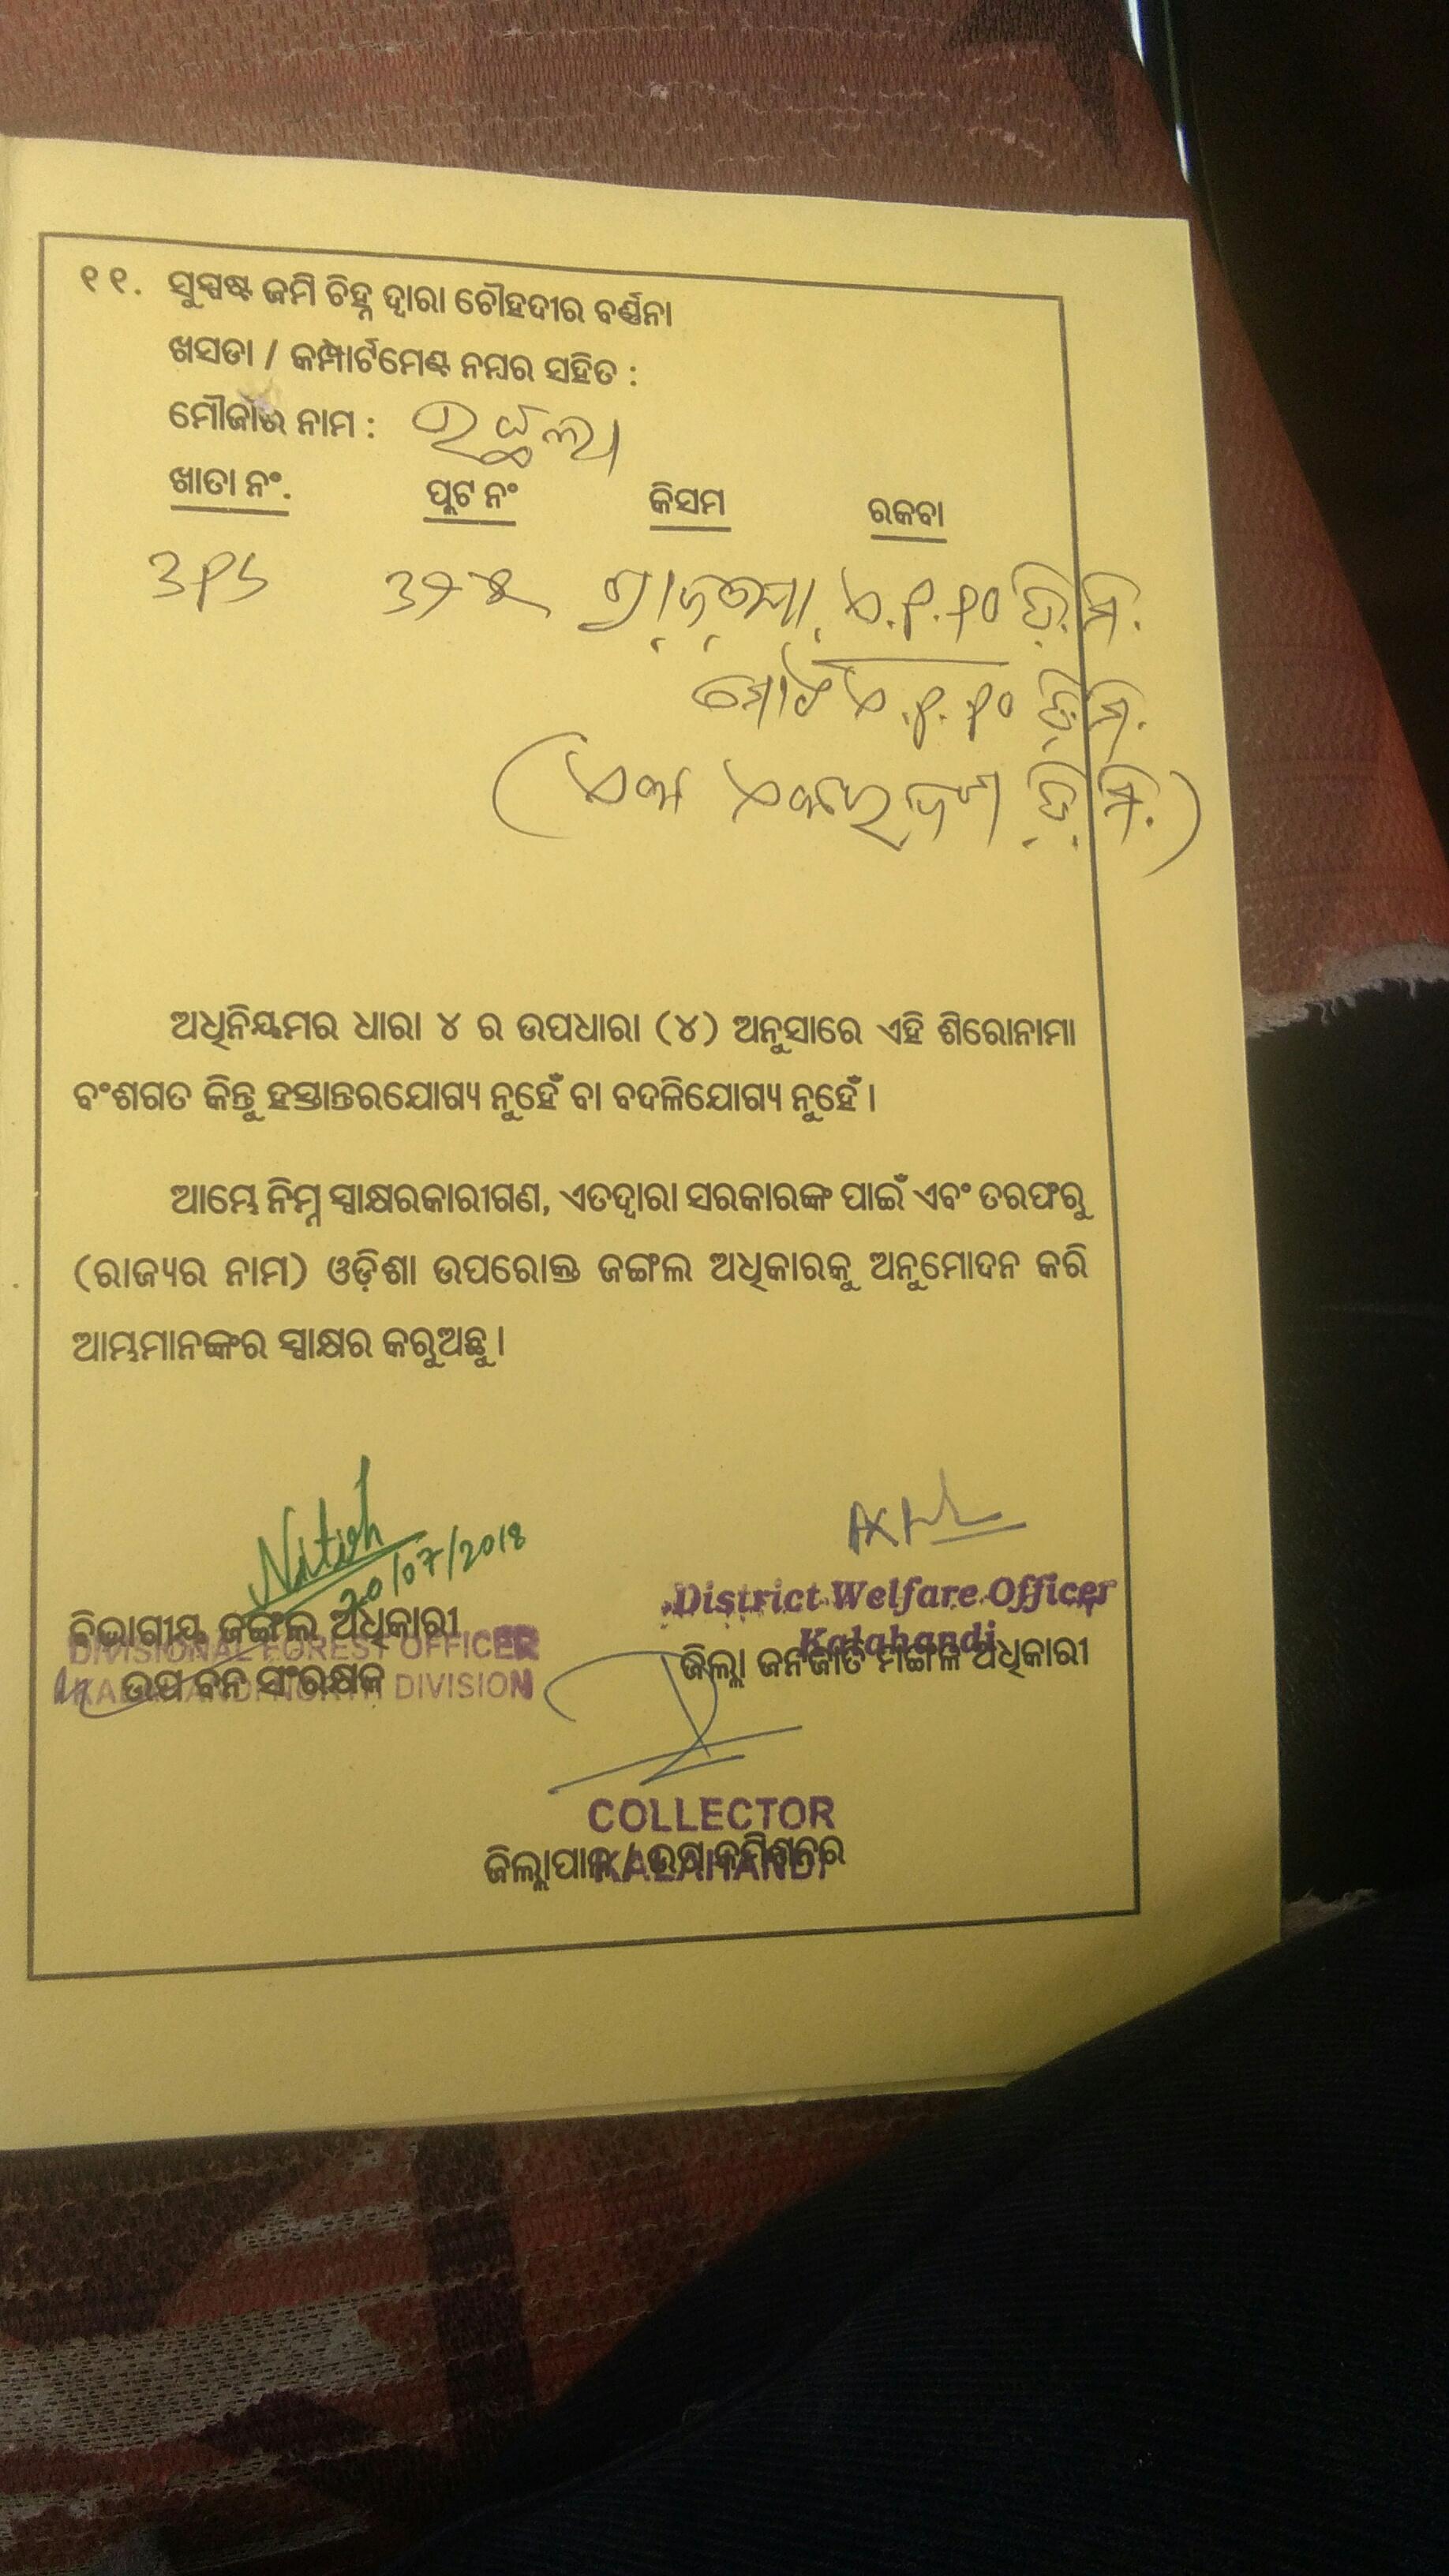 ୧୧. ସୁସ୍ପଷ୍ଟ ଜମି ଚିହ୍ନ ଦ୍ୱାରା ଚୌହଦୀର ବର୍ଣ୍ଣନା
ଖସଡା / କମ୍ପାର୍ଟମେଣ୍ଟ ନମ୍ବର ସହିତ :
ମୌଜାର ନାମ :
ଖାତା ନଂ. ପ୍ଲଟ ନଂ କିସମ ରକବା
ଏ.୧.୧୦ ଡି.ମି.
ମୋଟ ଏ.୧.୧୦ ଡି.ମି.
(ଏକ ଏକର ଦଶ ଡି.ମି.)
ଅଧିନିୟମର ଧାରା ୪ ର ଉପଧାରା (୪) ଅନୁସାରେ ଏହି ଶିରୋନାମା
ବଂଶଗତ କିନ୍ତୁ ହସ୍ତାନ୍ତରଯୋଗ୍ୟ ନୁହେଁ ବା ବଦଳିଯୋଗ୍ୟ ନୁହେଁ ।
ଆମ୍ଭେ ନିମ୍ନ ସ୍ୱାକ୍ଷରକାରୀଗଣ, ଏତଦ୍ୱାରା ସରକାରଙ୍କ ପାଇଁ ଏବଂ ତରଫରୁ
(ରାଜ୍ୟର ନାମ) ଓଡ଼ିଶା ଉପରୋକ୍ତ ଜଙ୍ଗଲ ଅଧିକାରକୁ ଅନୁମୋଦନ କରି
ଆମ୍ଭମାନଙ୍କର ସ୍ୱାକ୍ଷର କରୁଅଛୁ ।
Nitish
20/07/2018
District Welfare Officer
Kalahandi
ବିଭାଗୀୟ ଜଙ୍ଗଲ ଅଧିକାରୀ
DIVISIONAL FOREST OFFICER
ଜିଲ୍ଲା ଜନଜାତି ମଙ୍ଗଳ ଅଧିକାରୀ
ଉପ ବନ ସଂରକ୍ଷକ
KALAHANDI NORTH DIVISION
COLLECTOR
ଜିଲ୍ଲାପାଳ / ଉପ କମିଶନର
KALAHANDI